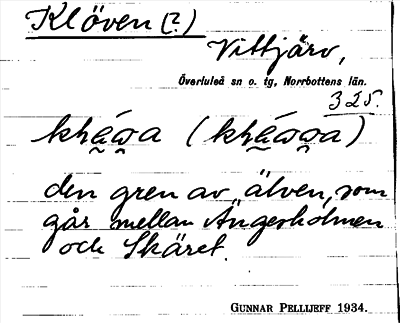 Klöven (?)
Vittjärv,
Överluleå sn o. tg, Norrbottens län.
325.
den gren av älven, som
går mellan Ängesholmen
och Skäret.
GUNNAR PELLIJEFF 1934.